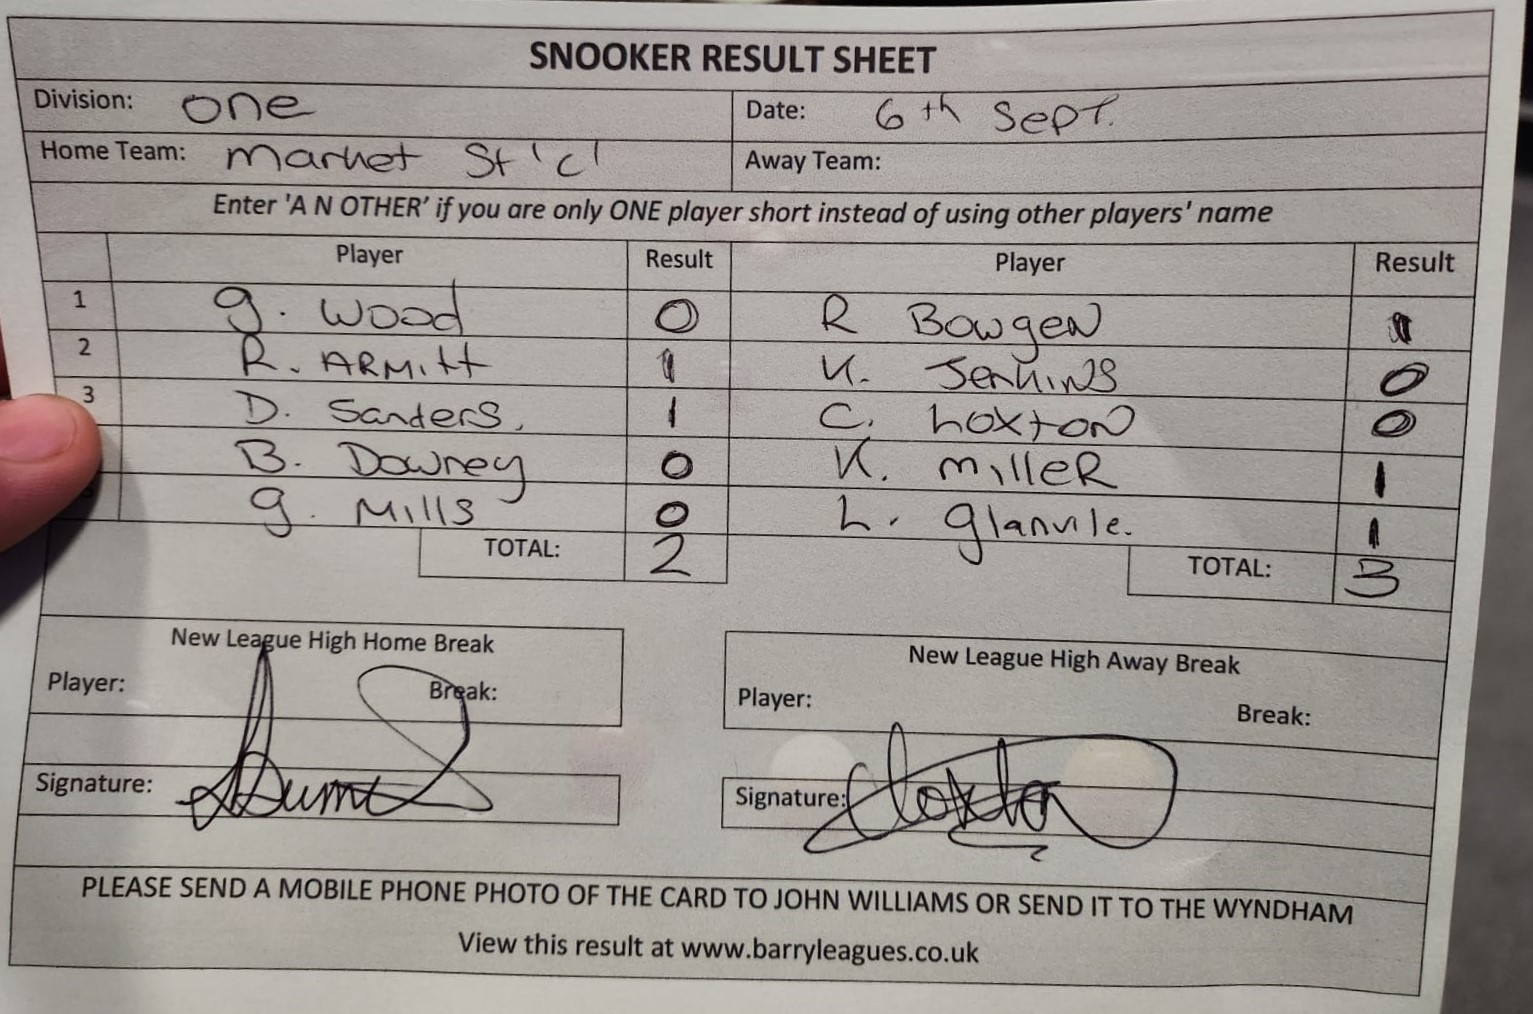 SNOOKER RESULT SHEET
Division: one Date: 6th Sept.
Home Team: Market St 'c' Away Team:
Enter 'A N OTHER' if you are only ONE player short instead of using other players' name
Player Result Player Result
1 g. Wood 0 R Bowgen 1
2 R. ARMitt 1 K. Jenkins 0
3 D. Sanders. 1 C. Loxton 0
B. Downey 0 K. milleR 1
g. Mills 0 L. glanvile. 1
TOTAL: 2 TOTAL: 3
New League High Home Break New League High Away Break
Player: Break: Player: Break:
Signature: Signature: Loxton
PLEASE SEND A MOBILE PHONE PHOTO OF THE CARD TO JOHN WILLIAMS OR SEND IT TO THE WYNDHAM
View this result at www.barryleagues.co.uk